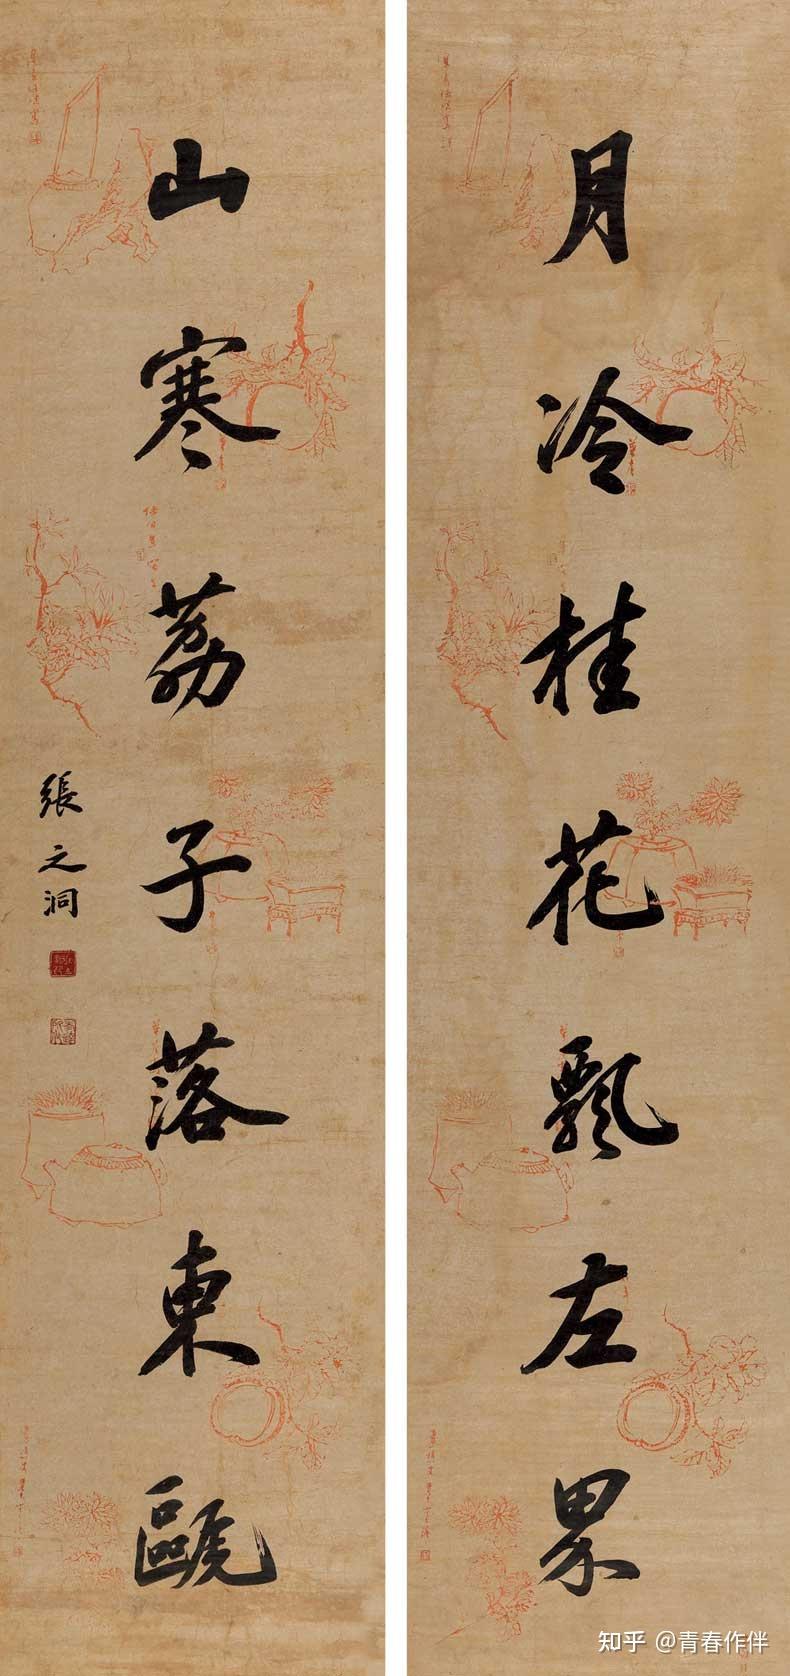 月冷桂花飄左界
山寒荔子落東甌
張之洞
知乎 @青春作伴